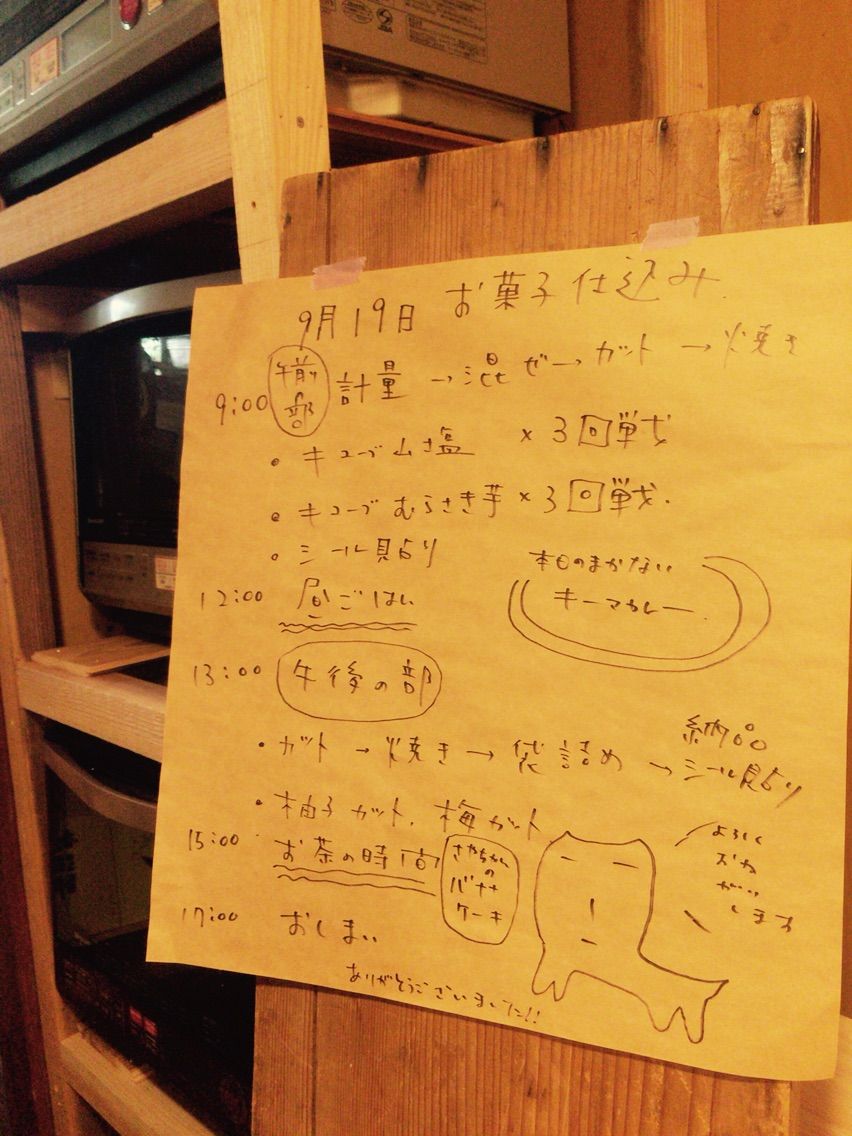 9月19日 お菓子仕込み
9:00 午前部 計量→混ぜ→カット→焼き
・キューブ山塩 ×3回戦
・キューブむらさき芋×3回戦.
・シール貼り
本日のまかない
キーマカレー
12:00 昼ごはん
13:00 午後の部
・カット→焼き→袋詰め→シール貼り
納品
・柚子カット、梅カット
15:00 お茶の時間
さやちゃんの
バナナ
ケーキ
よろしく
おね
がい
します
17:00 おしまい
ありがとうございました!!